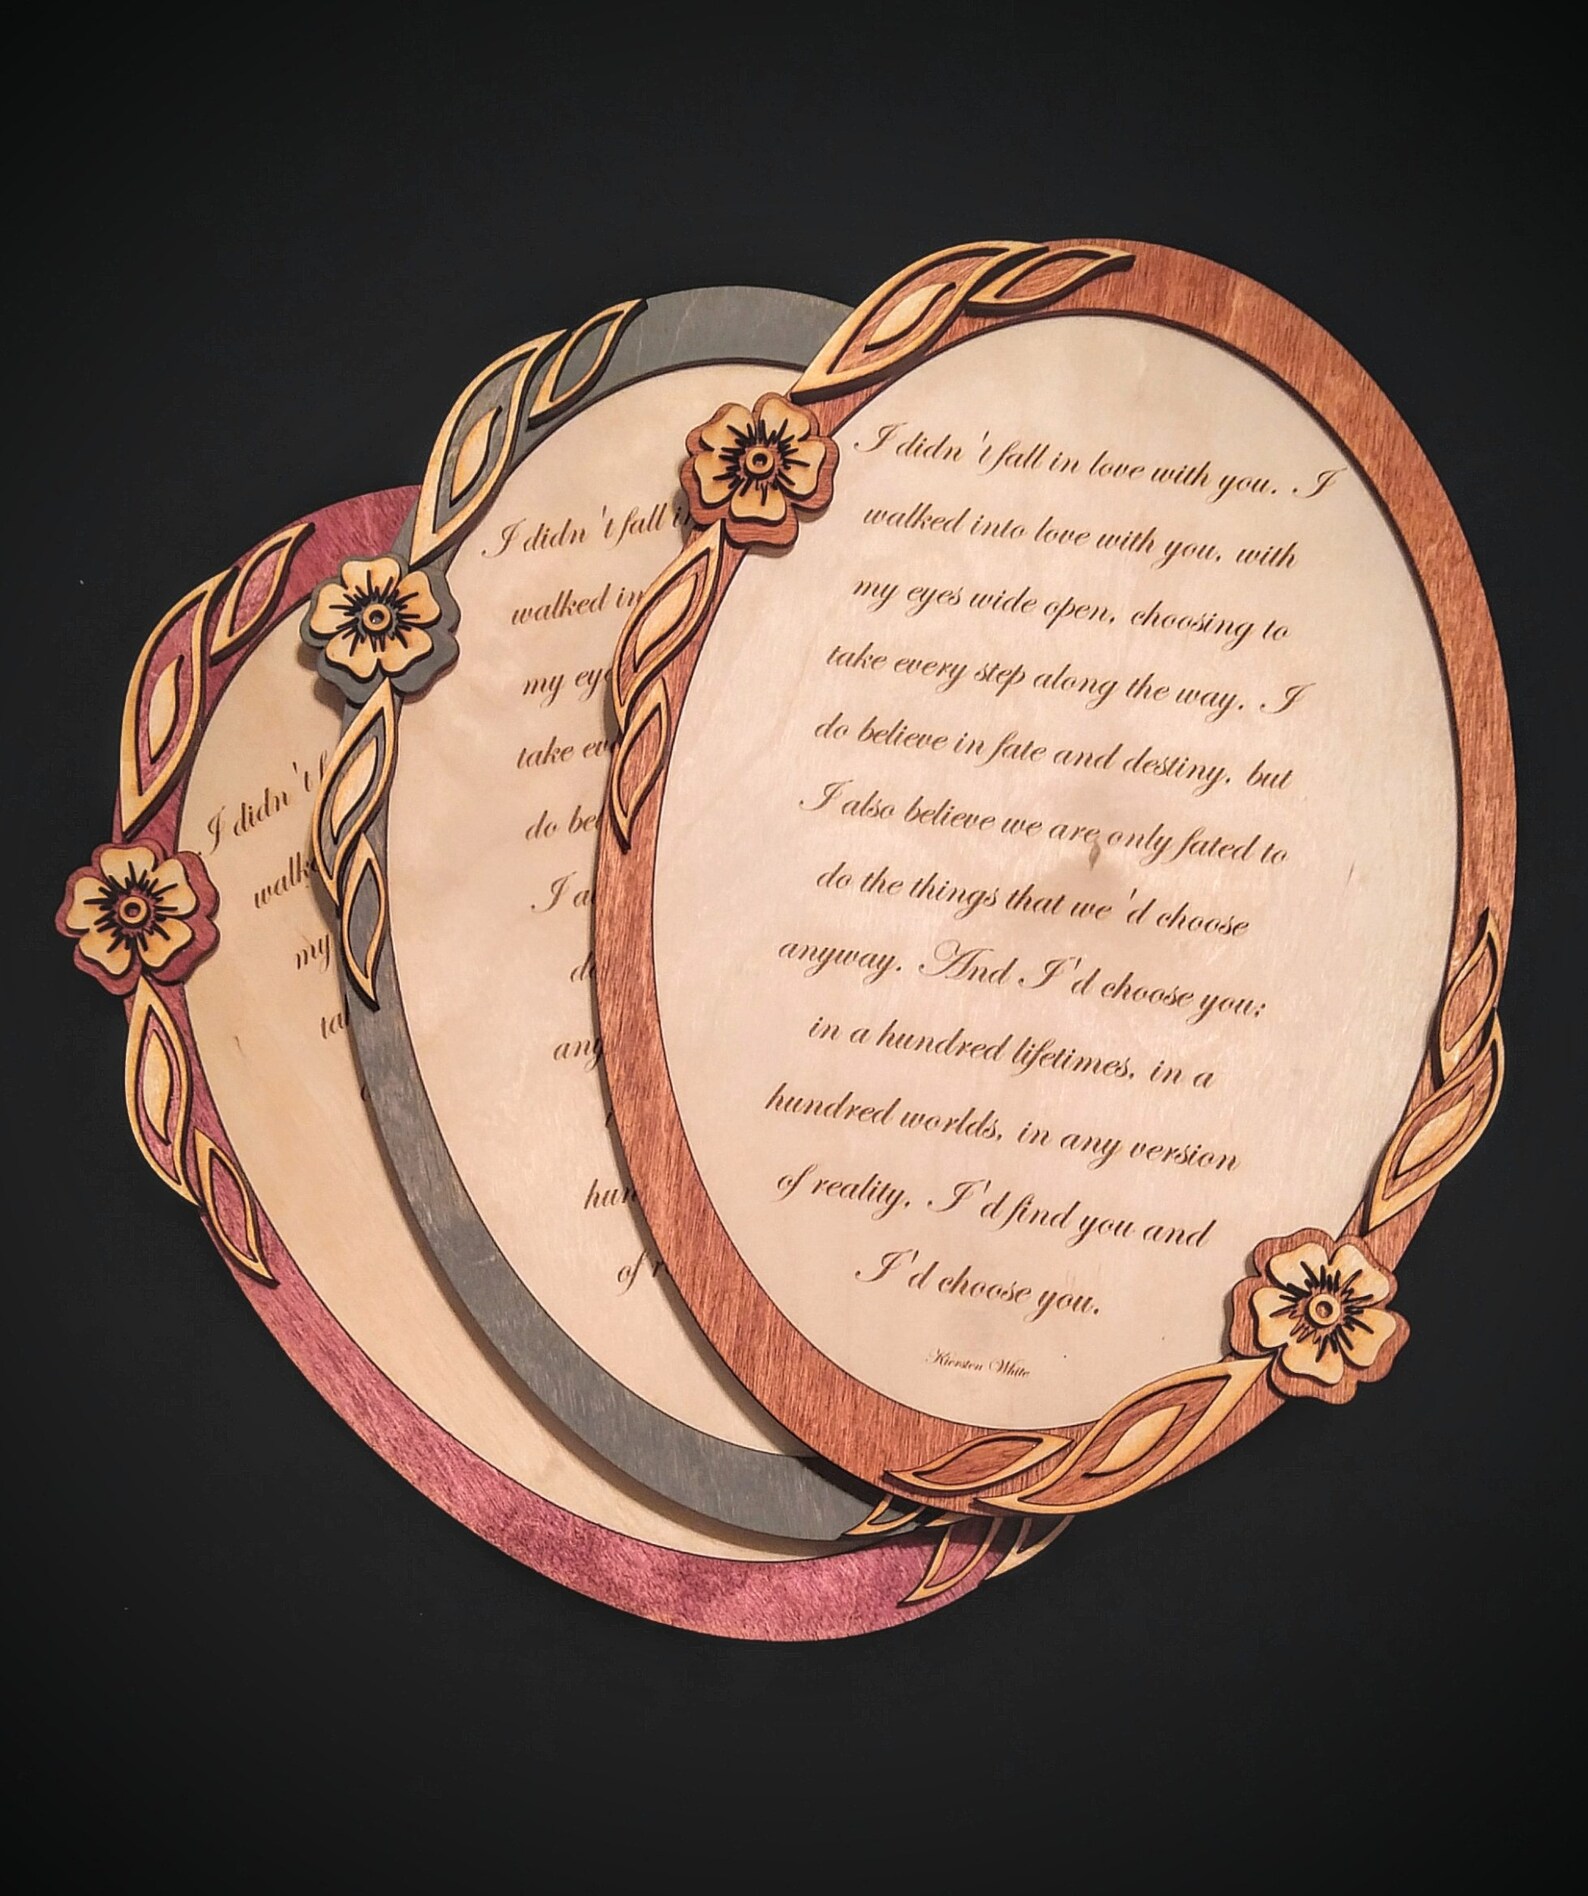 I didn't fall in love with you. I
walked into love with you, with
my eyes wide open, choosing to
take every step along the way. I
do believe in fate and destiny, but
I also believe we are only fated to
do the things that we'd choose
anyway. And I'd choose you;
in a hundred lifetimes, in a
hundred worlds, in any version
of reality, I'd find you and
I'd choose you.
Kiersten White
I didn't fall in
walked in
my eye
take eve
do bel
I al
do
any
hun
of r
I didn't f
walke
my
tak